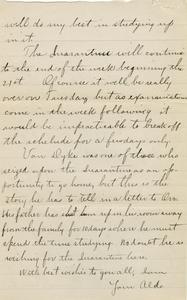 will do my best in studying up
in it.
The Quarantine will continue
to the end of the week beginning the
21st. Of course it will be really
over on Tuesday but as examinations
come in the week following it
would be impracticable to break off
the schedule for a few days only.
Van Dyke was one of those who
seized upon the Quarantine as an op-
portunity to go home, but this is the
story he has to tell in a letter to Orr.
His father has shut him up in his room away
from the family for 10 days where he must
spend the time studying. No doubt he is
wishing for the Quarantine here.
With best wishes to you all, I am
Your Aldo